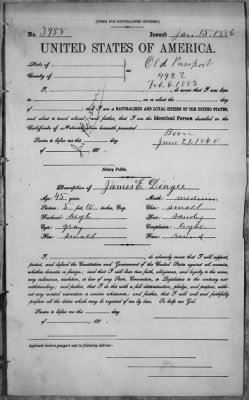 [FORM FOR NATURALIZED CITIZEN.]
No. 3958 Issued Jan. 15. 1886
UNITED STATES OF AMERICA.
State of Old Passport
County of 4922
Feb. 6. 1883
I, do swear that I was born
in on or about the day of
that I am a NATURALIZED AND LOYAL CITIZEN OF THE UNITED STATES,
and about to travel abroad; and further, that I am the Identical Person described in the
Certificate of Naturalization herewith presented.
Sworn to before me this day Born
of 188 . June 21. 1840
Notary Public.
Description of James E. Dingee
Age: 45 years Mouth: medium
Stature: 5 feet 10 inches, Eng. Chin: small
Forehead: high Hair: sandy
Eyes: gray Complexion: light
Nose: small Face: round
I, do solemnly swear that I will support,
protect, and defend the Constitution and Government of the United States against all enemies,
whether domestic or foreign; and that I will bear true faith, allegiance, and loyalty to the same,
any ordinance, resolution, or law of any State, Convention, or Legislature to the contrary not-
withstanding; and further, that I do this with a full determination, pledge, and purpose, with-
out any mental reservation or evasion whatsoever; and further, that I will well and faithfully
perform all the duties which may be required of me by law. So help me God.
Sworn to before me this day
of 188 .
Applicant desires passport sent to following address: